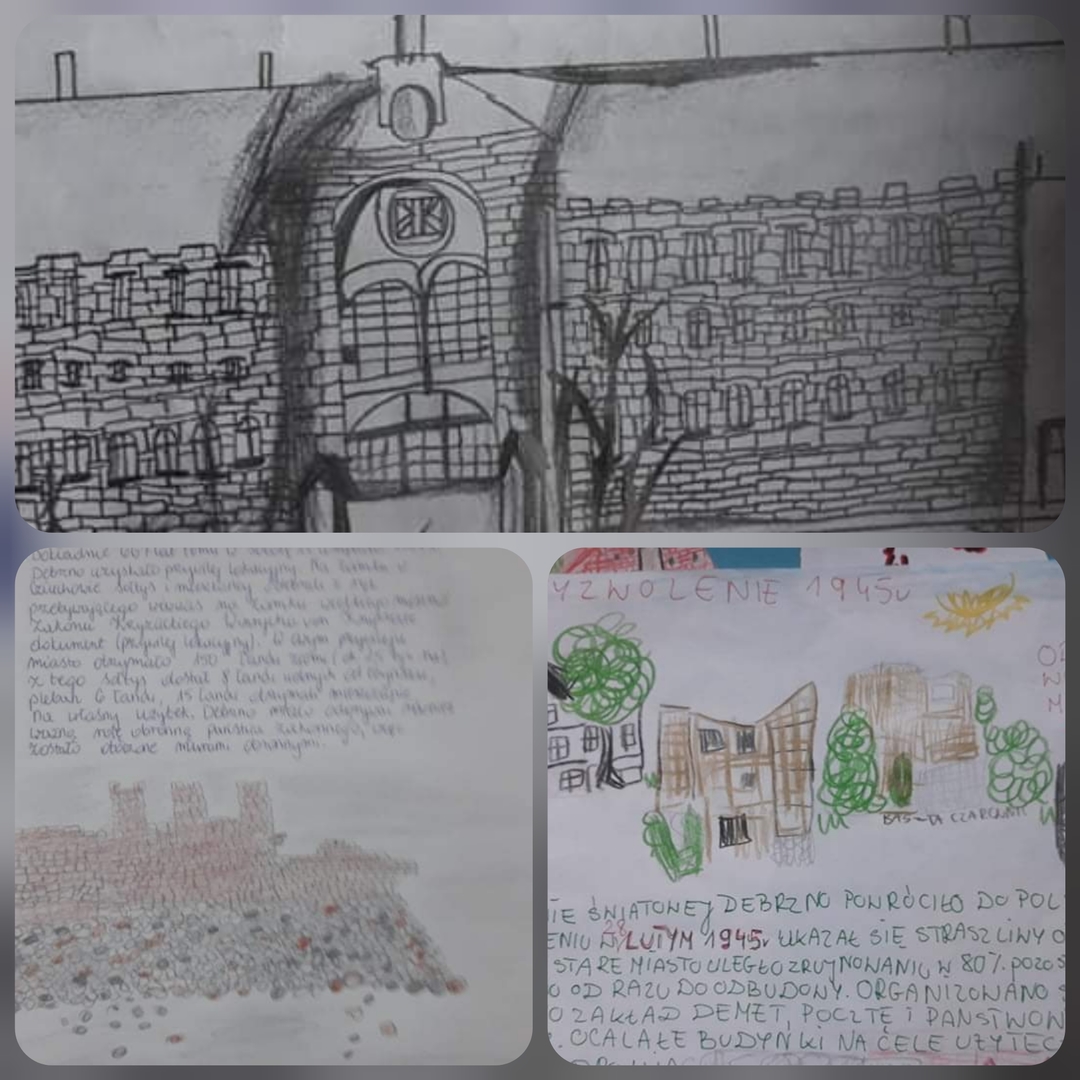 Debrzno uzyskało przywilej lokacyjny. Na zamku w
Człuchowie sołtys i mieszkańcy
przebywającego wówczas na zamku wielkiego mistrza
Zakonu Krzyżackiego Winrycha von Kniprode
dokument (przywilej lokacyjny). W owym przywileju
miasto otrzymało 150 łanów ziemi (
z tego sołtys dostał 8 łanów wolnych od czynszu,
pleban 6 łanów, 15 łanów otrzymali mieszkańcy
na własny użytek. Debrzno miało odgrywać również
ważną rolę obronną państwa zakonnego, więc
zostało otoczone murami obronnymi.
YZWOLENIE 1945r
BASZTA CZAROWNIC
IE ŚWIATOWEJ DEBRZNO POWRÓCIŁO DO POL
ENIU W 28 LUTYM 1945r. UKAZAŁ SIĘ STRASZLIWY O
STARE MIASTO ULEGŁO ZRUJNOWANIU W 80%. POZOS
O OD RAZU DO ODBUDOWY. ORGANIZOWANO
O ZAKŁAD DEMET, POCZTĘ I PAŃSTWOW
. OCALAŁE BUDYNKI NA CELE UŻYTEC